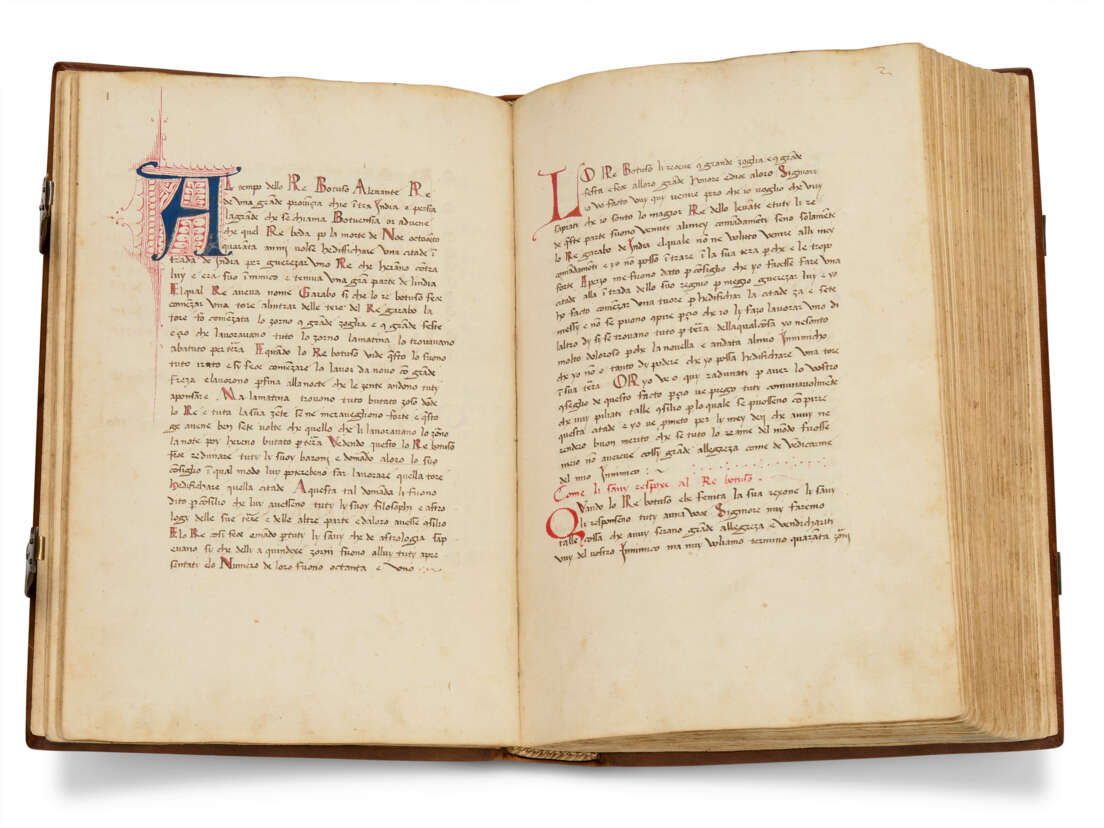 1
Al tempo dello Re Botuso Aleuante Re
de una grãde prouĩcia chie ĩtra India e persia
lagrãde che se chiama Botuensia or aduene
che quel Re beda po la morte de Noe octocẽto
quarãta anni volse hedifichare una citade ĩ
trada de India per guerezar uno Re che herano cõtra
luy e era suo ĩimico e tenuia una grã parte de lindia
El qual Re aueua nome Garabo si che lo re botuso fece
comẽzar una tore alintrar delle tere del Re garabo la
tore fo comẽzata lo zorno cũ grãde zoglia e cũ grãde feste
e cio che lauorauano tuto lo zorno lamatina lo trouauano
abatuto per tẽra Equãdo lo Re botuso vide q̃sto lo fuono
tuto irato e si fece comẽzare lo lauor da nouo cõ grãde
freza e lauorono p̃fina alla nocte che le gente andono tuty
aponsare Na lamatina trouono tuto butato zoso dõde
lo Re e tuta la sua zẽte se ne merauegliono forte e q̃sto
ge auene ben sete volte che quello che li lauorauano lo zõno
la note poy hereno butato p tẽra Vedendo questo lo Re botuso
fece redunare tuty ly suoy baroni e domãdo aloro lo suo
cõsiglio ĩ qual modo luy poterebeno far lauorare quella tore
hedifichare quella citade A questa tal domãda li fuono
dito p cõsilio che luy auesseno tuty ly suoy filosophi e astro
logy delle sue tẽre e delle altre parte e daloro auesse cõsilio
E lo Re cosi fece e mãdo p tuty li sauy che de astrologia sap
euano si che delli a quindexe zorni fuono alluy tuty apre
sentati e lo Numero de loro fuono octanta e uno
2
LO Re Botuso li receue cũ grande zoglia e cũ grãde
festa e fece alloro grãde honore e dice aloro Signori
io vo facto vuy qui venire pero che io voglio che vuy
sapiati che io sonto lo magior Re dello leuãte e tuty li re
de q̃ste parte suono venuti alimey comãdamẽti seno solamẽte
lo Re garabo de India el quale nõ ne volito venire alli mey
comãdamẽti e yo nõ possa ĩtrare ĩ la sua tera p che e le trop
forte A perzo me fuono dato p cõsiglio che yo fecesse fare una
citade alla ĩtrada dello suo regnio p meglio guerezar luy e yo
ho facto comẽzar una tuore p hedifichar la citade za e sete
messy e nõ se puono cõpire p cio che io li fazo lauorar uno di
laltro dy si se trouano tuto p tẽra della qual cossa yo ne sonto
molto doloroso poche la nouella e andata almio Inimicho
che yo nõ e tanto dy podere che yo possa hedifichare una tore
ĩ sua tẽra OR yo ve o qui radunati p auer lo vostro
cõseglio de questo facto p zio ue prego tuty comunaulmẽte
che vuy piliati talle cõsilio p lo quale se puosseno cõpirre
questa citade e yo ve p̃meto per ly mey dey che auuy ne
rendero buon merito che se tuto lo reame del modo fuosse
meio nõ auereue cossy grãde allegreza come de vedicarme
del mio Inimico
Come li sauy respoxe al Re botuso
Quando lo Re botuso che fenita la sua rexone li sauy
li responseno tuty auna voce Signore nuy faremo
talle cossa che auuy serano grãde allegreza e vendichariti
vuy del vostro Inimico ma nuy voliamo termino quarãta zõni